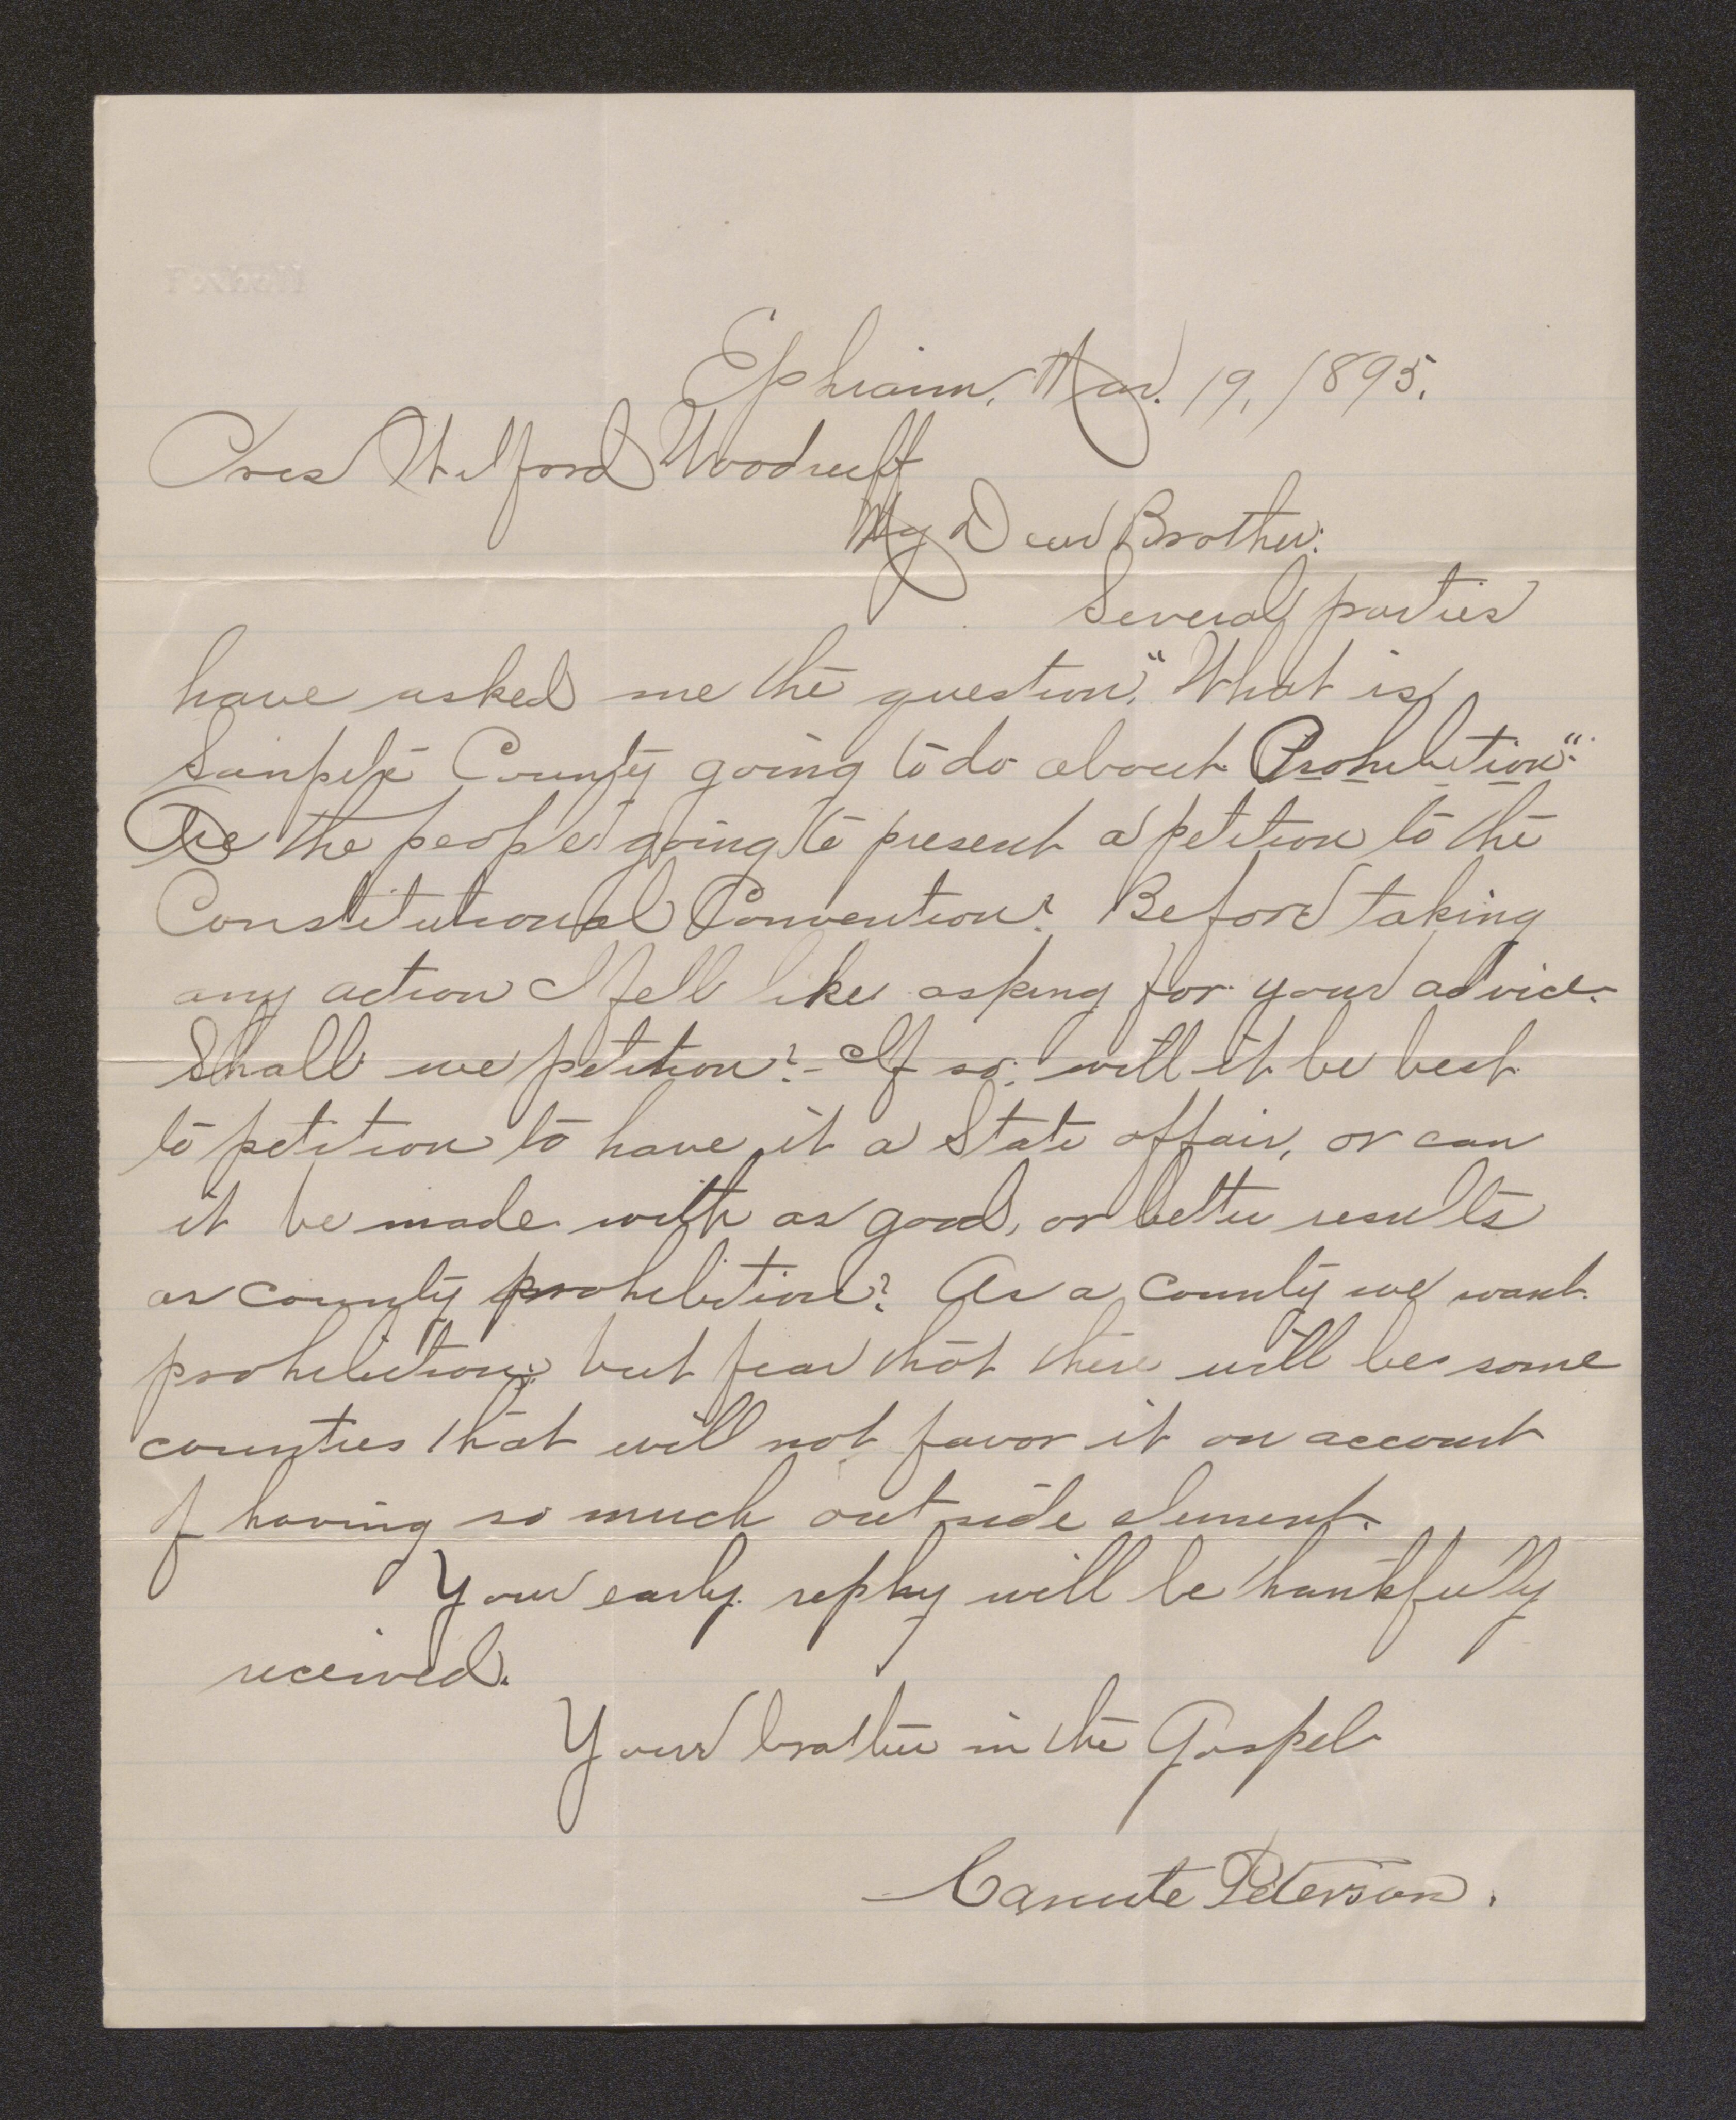 Ephraim, Mar. 19, 1895.
Pres Wilford Woodruff
My Dear Brother:
Several parties
have asked me the question, "What is
Sanpete County going to do about Prohibition".
Are the people going to present a petition to the
Constitutional Convention? Before taking
any action I fell like asking for your advice.
Shall we petition? - If so, will it be best
to petition to have it a State affair, or can
it be made with as good, or better results
as county prohibition? As a county we want
prohibition; but fear that there will be some
counties that will not favor it on account
of having so much outside element.
Your early reply will be thankfully
received.
Your brother in the Gospel
Canute Peterson.